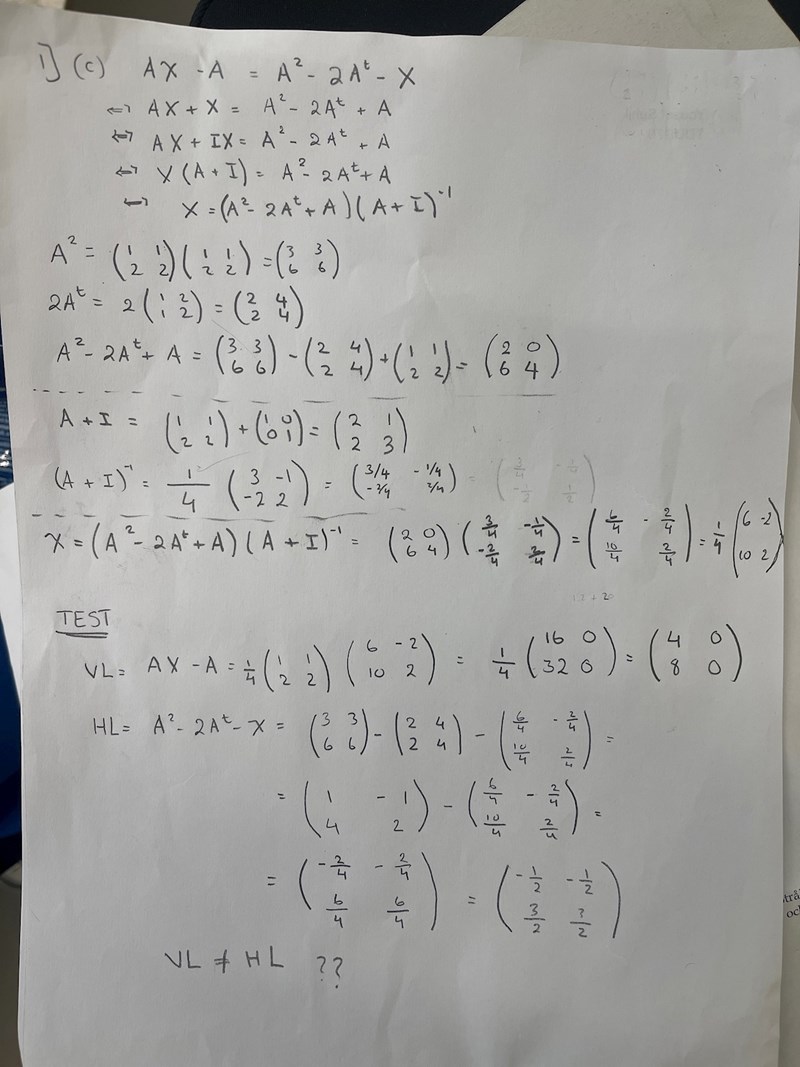 1] (c) AX - A = A² - 2Aᵗ - X
⇔ AX + X = A² - 2Aᵗ + A
⇔ AX + IX = A² - 2Aᵗ + A
⇔ X(A + I) = A² - 2Aᵗ + A
⇔ X = (A² - 2Aᵗ + A)(A + I)⁻¹
A² = (1 1; 2 2)(1 1; 2 2) = (3 3; 6 6)
2Aᵗ = 2(1 2; 1 2) = (2 4; 2 4)
A² - 2Aᵗ + A = (3 3; 6 6) - (2 4; 2 4) + (1 1; 2 2) = (2 0; 6 4)
A + I = (1 1; 2 2) + (1 0; 0 1) = (2 1; 2 3)
(A + I)⁻¹ = 1/4 (3 -1; -2 2) = (3/4 -1/4; -2/4 2/4)
X = (A² - 2Aᵗ + A)(A + I)⁻¹ = (2 0; 6 4)(3/4 -1/4; -2/4 2/4) = (6/4 -2/4; 10/4 2/4) = 1/4 (6 -2; 10 2)
TEST
VL = AX - A = 1/4 (1 1; 2 2)(6 -2; 10 2) = 1/4 (16 0; 32 0) = (4 0; 8 0)
HL = A² - 2Aᵗ - X = (3 3; 6 6) - (2 4; 2 4) - (6/4 -2/4; 10/4 2/4) =
= (1 -1; 4 2) - (6/4 -2/4; 10/4 2/4) =
= (-2/4 -2/4; 6/4 6/4) = (-1/2 -1/2; 3/2 3/2)
VL ≠ HL ??